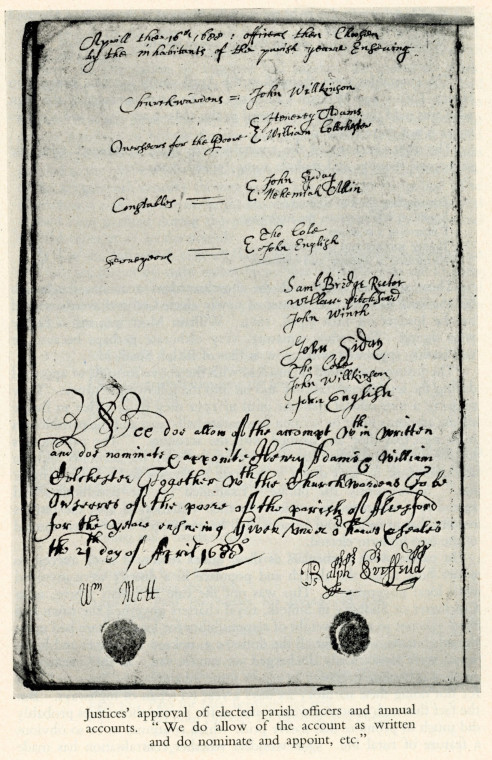 Aprill ther 16th 1688: officers then Chosen
by the inhabitants of the parish yeare Ensewing
Churchwardens = John Willkinson
Henerey Adams
Overseers for the Poore William Collchester
John Syday
Constables Nehemiah Allin
Tho Cole
Surveyors John English
Saml Bridge Rector
William
John Winch
John Siday
Tho Cole
John Willkinson
John English
Wee doe allow of the accompt wth in written
and doe nominate & appointe Henry Adams & William
Colchester Together wth the Churchwardens To be
Overseeres of the poore of the parish of Alresford
for the yeare ensueing Given under or hands & seales
the 21th day of Aprill 1688
Wm Mott
Ralph
Justices' approval of elected parish officers and annual
accounts. " We do allow of the account as written
and do nominate and appoint, etc."